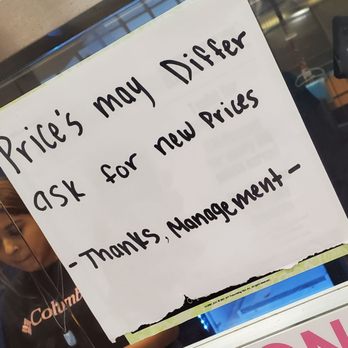 Price's may Differ
ask for new Prices
- Thanks, Management -
Columb
ON